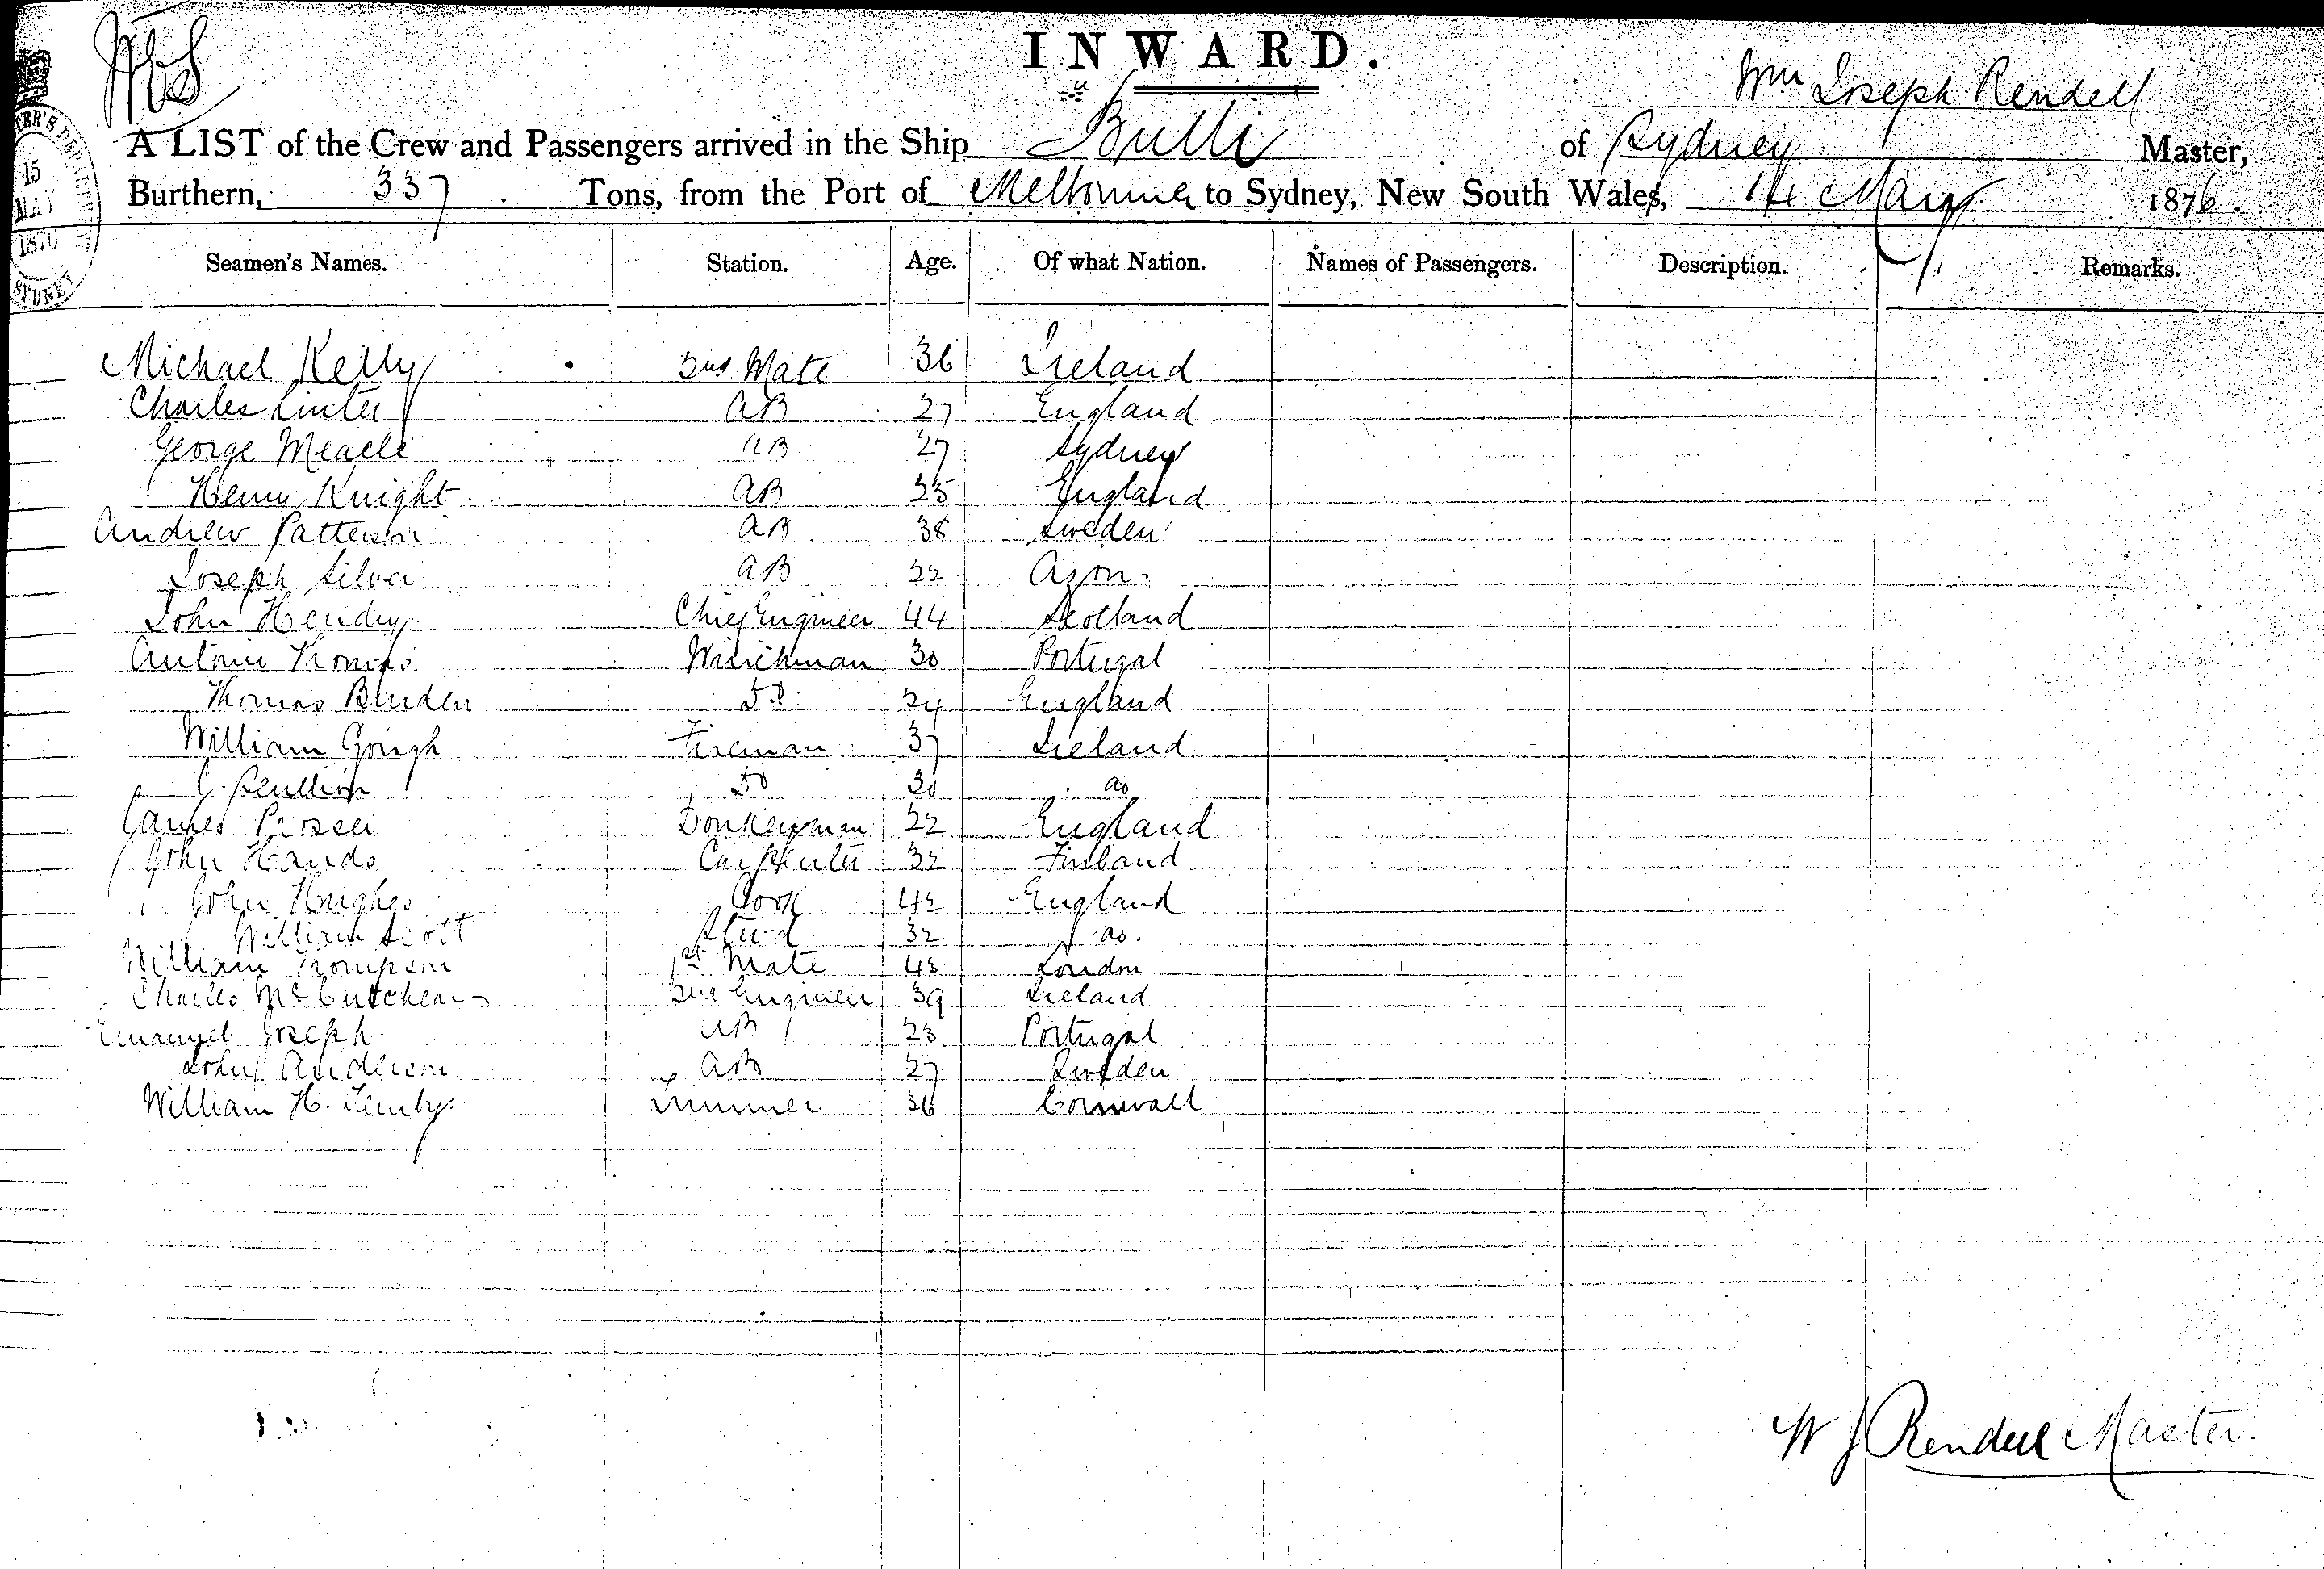 INWARD.
Wm Joseph Rendell
A LIST of the Crew and Passengers arrived in the Ship Bulli of Sydney Master,
Burthern, 337 Tons, from the Port of Melbourne to Sydney, New South Wales, 14 May 1876.
15
MAY
SYDNEY
Seamen's Names. Station. Age. Of what Nation. Names of Passengers. Description. Remarks.
Michael Kelly 2nd Mate 36 Ireland
Charles Linter AB 27 England
George Meacle AB 27 Sydney
Henry Knight AB 25 England
Andrew Patterson AB 38 Sweden
Joseph Silver AB 22
John Hendry Chief Engineer 44 Scotland
Antoni Thomas Winchman 30 Portugal
Thomas Binden Do 24 England
William Gough Fireman 37 Ireland
Do 30 do
James Prosser Donkeyman 22 England
John Hands Carpenter 32 Finland
John Hughes Cook 42 England
William Scott Stewd 32 do.
William Thompson 1st Mate 43 London
Charles McCutchean 2nd Engineer 39 Ireland
Emanuel Joseph AB 23 Portugal
John Anderson AB 27 Sweden
William H. Trimmer 36 Cornwall
W J Rendell Master.